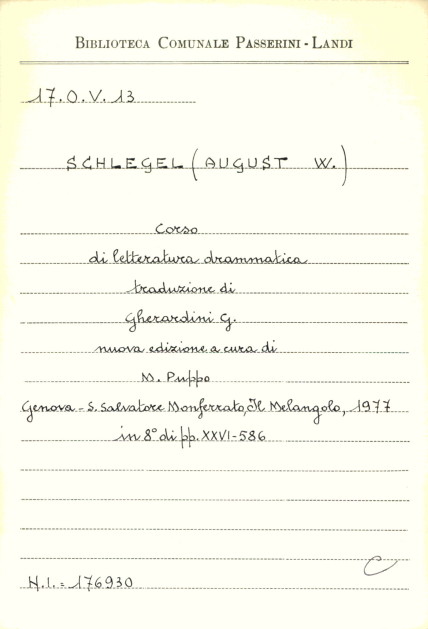 BIBLIOTECA COMUNALE PASSERINI - LANDI
17.O.V.13
SCHLEGEL (AUGUST W.)
Corso
di letteratura drammatica
traduzione di
Gherardini G.
nuova edizione a cura di
M. Puppo
Genova - S. Salvatore Monferrato, Il Melangolo, 1977
in 8° di pp. XXVI-586
C
N.I. = 176930